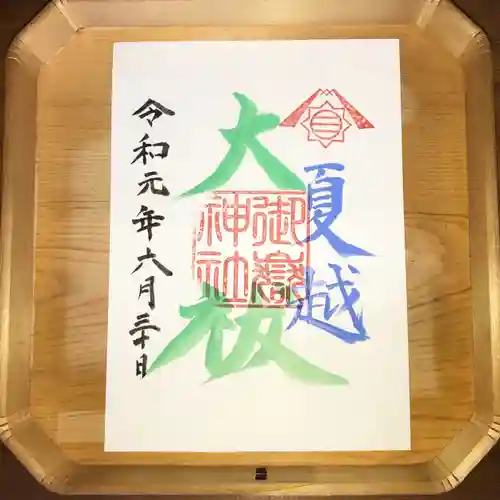 夏越
大祓
御嶽
神社
令和元年六月三十日